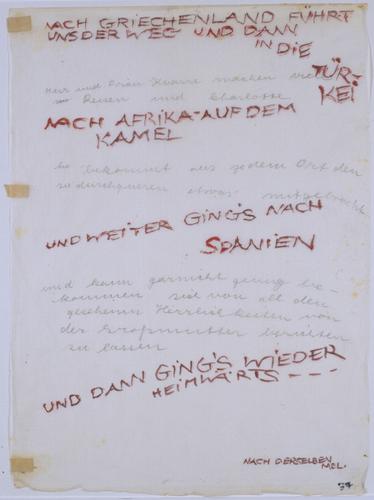 NACH GRIECHENLAND FÜHRT
UNS DER WEG UND DANN
IN DIE
TÜR-
KEI
Herr und Frau Knarre machen viele
Reisen und Charlotte
NACH AFRIKA-AUF DEM
KAMEL
bekommt aus jedem Ort den
sie durchqueren etwas mitgebracht
UND WEITER GING'S NACH
SPANIEN
und kann garnicht genug be-
kommen sich von all den
gesehenen Herrlichkeiten von
der Grossmutter berichten
zu lassen
UND DANN GING'S WIEDER
HEIMWÄRTS - - -
NACH DERSELBEN
MEL.